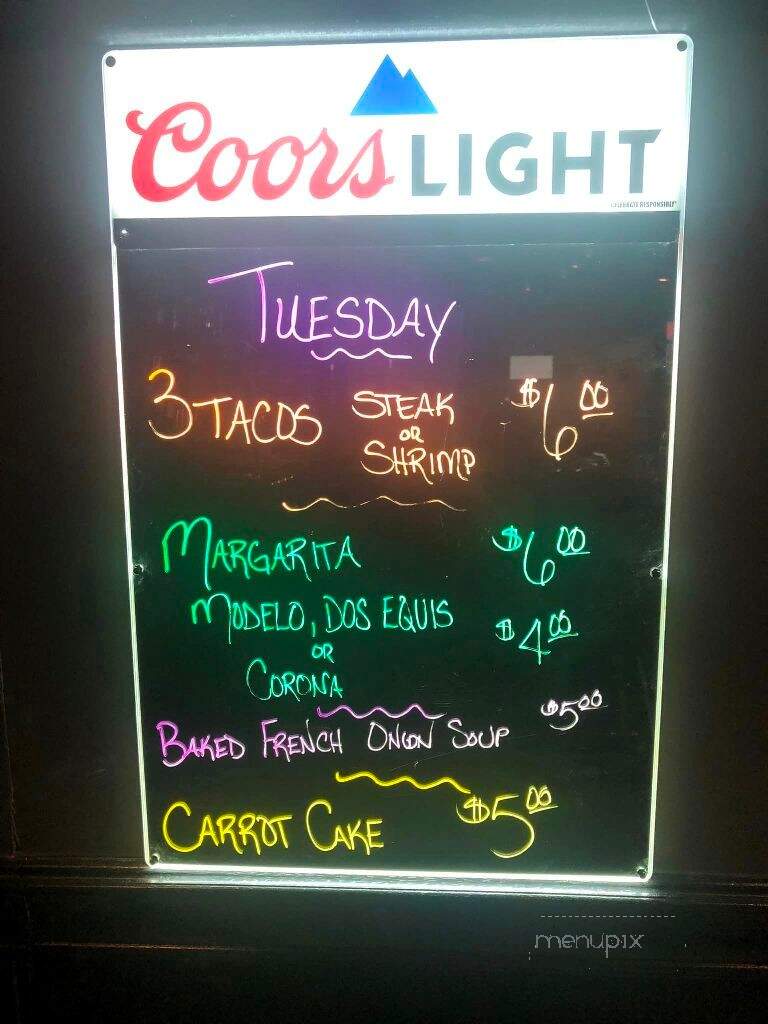 Coors LIGHT
CELEBRATE RESPONSIBLY®
TUESDAY
3 TACOS STEAK OR SHRIMP $6.00
MARGARITA $6.00
MODELO, DOS EQUIS $4.00
OR
CORONA
BAKED FRENCH ONION SOUP $5.00
CARROT CAKE $5.00
menupix